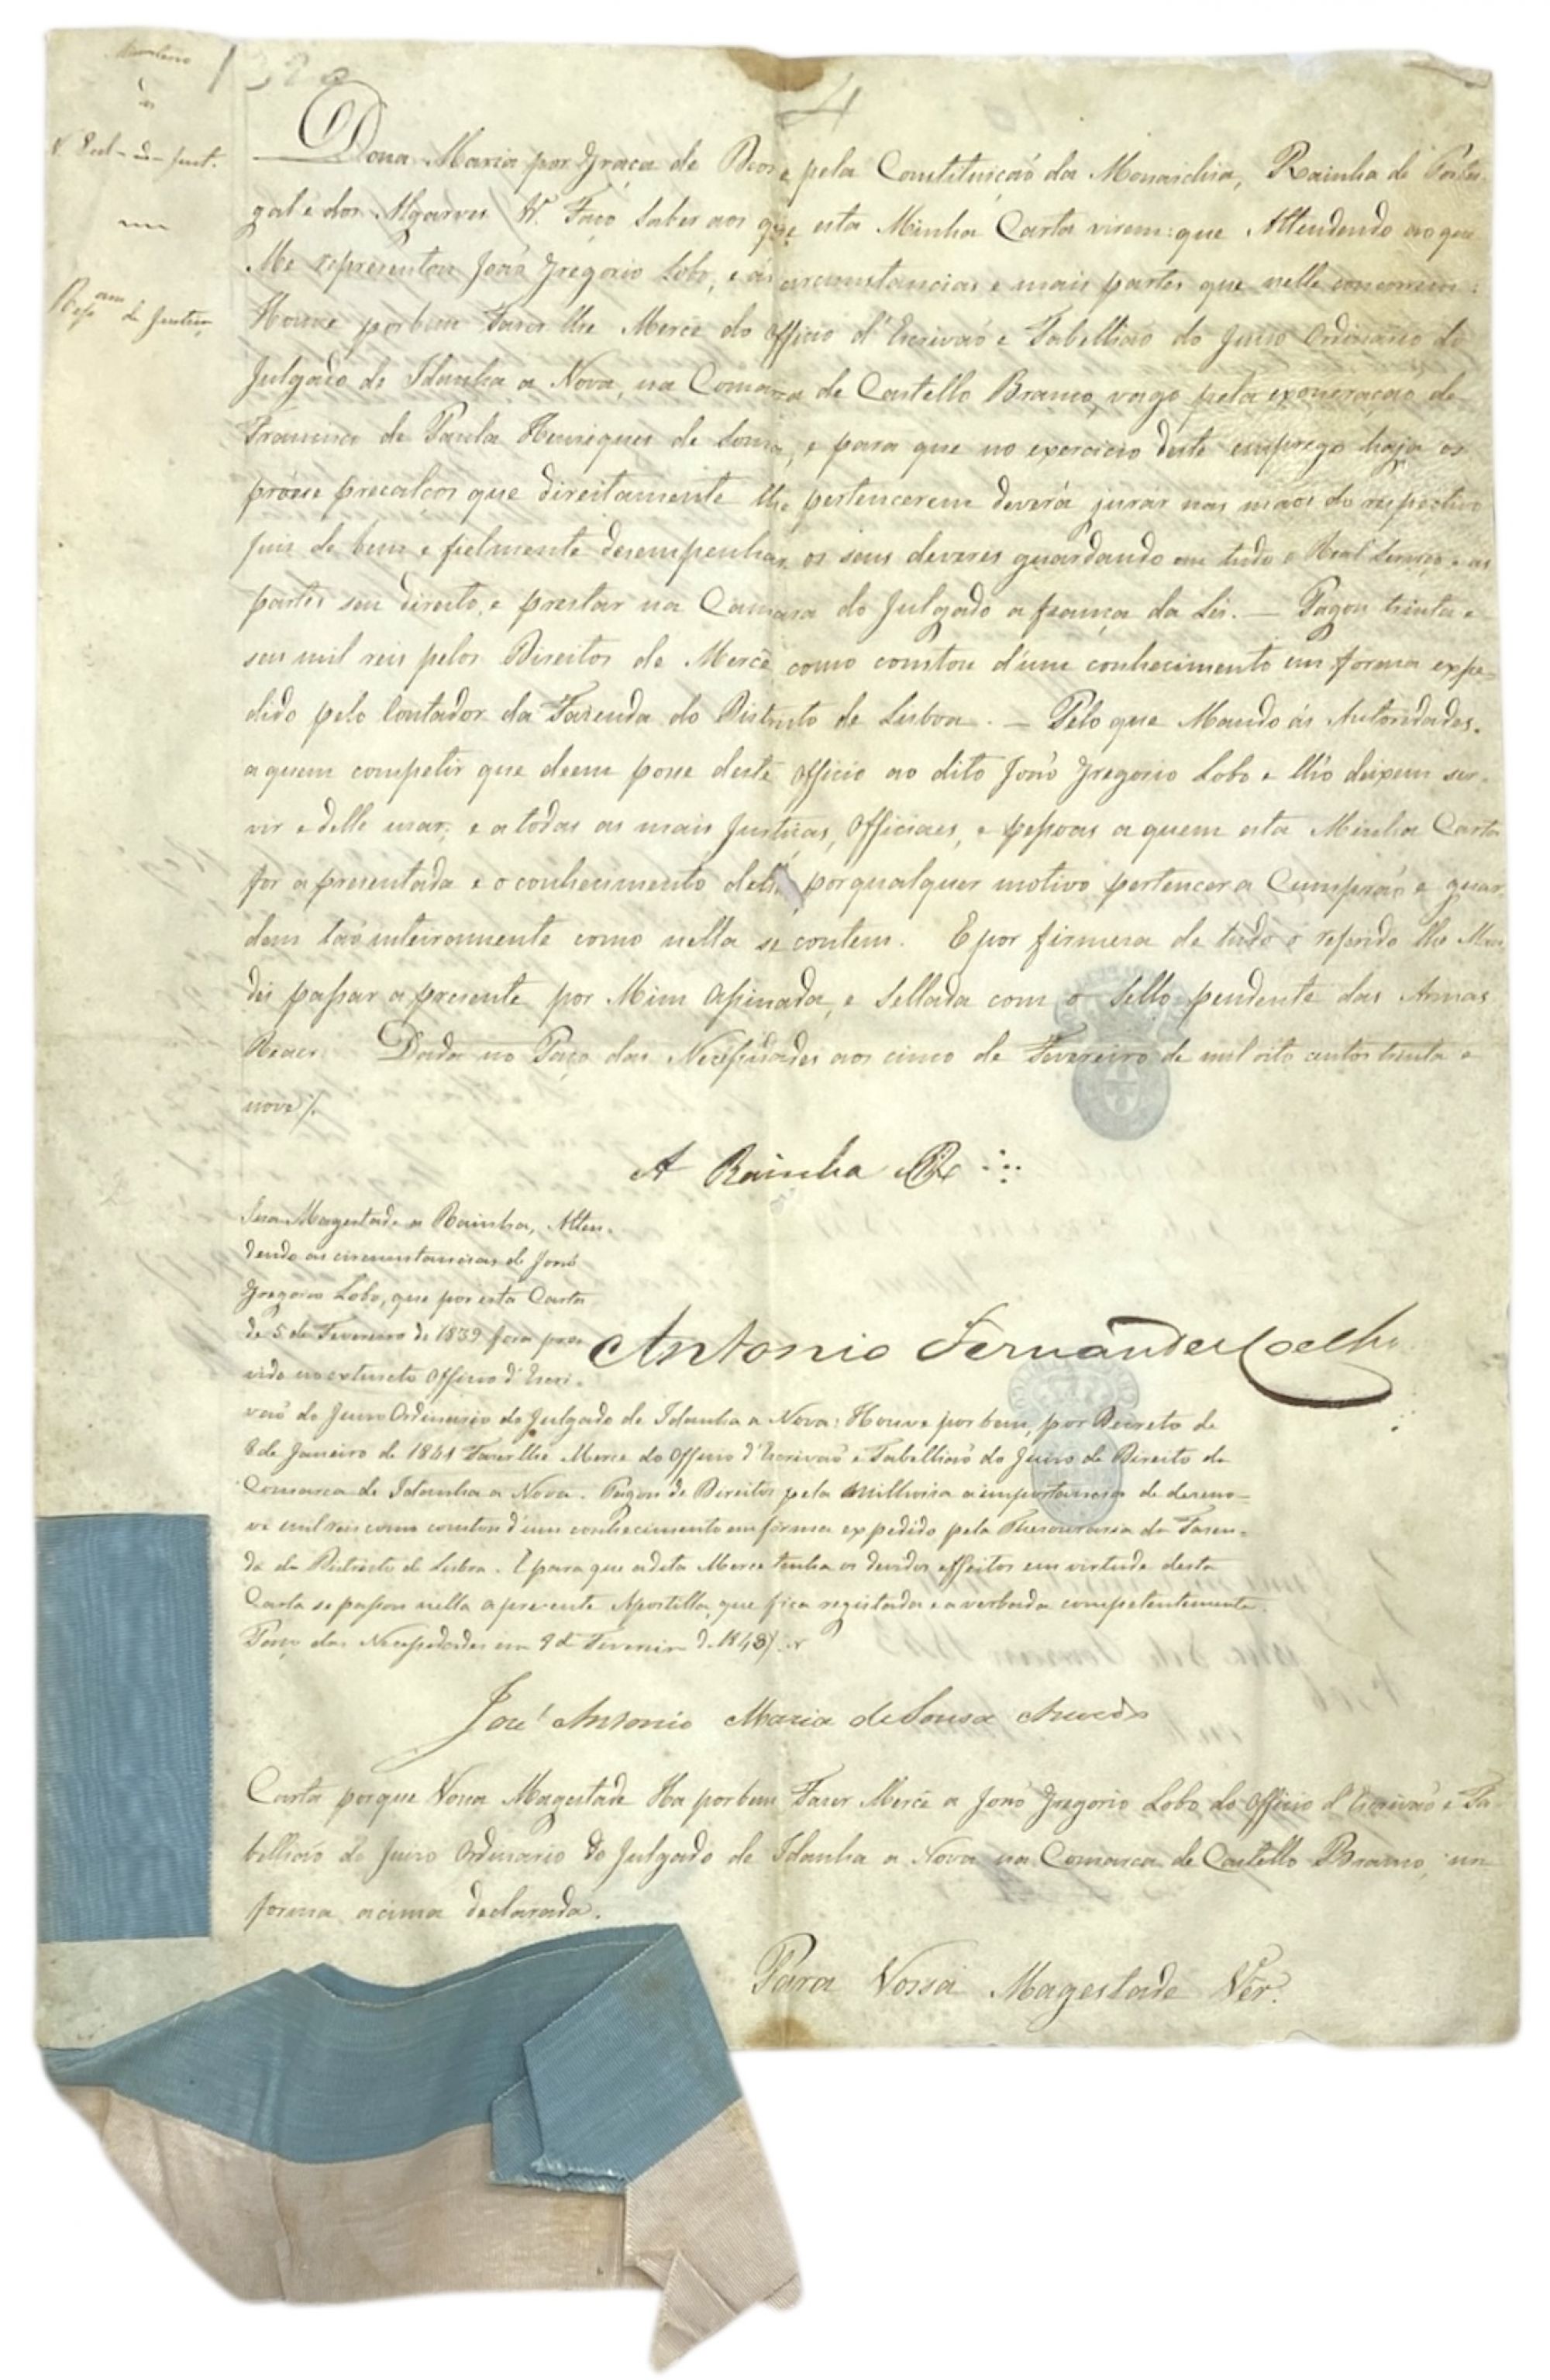 Ministerio
dos
N. Eccl. e de Just.
Rep.am de Justiça
4
Dona Maria por Graça de Deos e pela Constituição da Monarchia, Rainha de Portu-
gal e dos Algarves &. Faço saber aos que esta Minha Carta virem: que Attendendo ao que
Me representou João Gregorio Lobo, e ás circumstancias e mais partes que nelle concorrem:
Houve por bem Fazer lhe Mercê do Officio d'Escrivão e Tabellião do Juizo Ordinario do
Julgado de Idanha a Nova, na Comarca de Castello Branco, vago pela exoneração de
Francisco de Paula Henriques de Sousa, e para que no exercicio deste emprego haja os
próes e precalços que direitamente lhe pertencerem deverá jurar nas mãos do respectivo
juiz de bem e fielmente desempenhar os seus deveres guardando em tudo o Real Serviço e ás
partes seu direito, e prestar na Camara do Julgado a fiança da Lei. — Pagou trinta e
seis mil reis pelos Direitos de Mercê como constou d'um conhecimento em forma expe-
dido pelo Contador da Fazenda do Districto de Lisboa. — Pelo que Mando ás Autoridades.
a quem competir que deem posse deste Officio ao dito João Gregorio Lobo e lh'o deixem ser-
vir e delle usar, e a todas as mais Justiças, Officiaes, e pessoas a quem esta Minha Carta
for apresentada e o conhecimento della por qualquer motivo pertencer a Cumprão e guar-
dem tão inteiramente como nella se contem. E por firmesa de tudo o referido lhe Man-
dei passar a presente por Mim assinada, e Sellada com o Sello pendente das Armas
Reaes. Dada no Paço das Necessidades aos cinco de Fevereiro de mil oito centos trinta e
nove /.
A Rainha R
Sua Magestade a Rainha, Atten-
dendo ás circumstancias de João
Gregorio Lobo, que por esta Carta
de 5 de Fevereiro de 1839 fora pro-
vido no extincto Officio d'Escri-
Antonio Fernandes Coelho
vão do Juizo Ordinario do Julgado de Idanha a Nova: Houve por bem, por Decreto de
8 de Janeiro de 1841 Fazer lhe Mercê do Officio d'Escrivão e Tabellião do Juizo de Direito da
Comarca de Idanha a Nova. Pagou de Direitos pela melhoria a importancia de dezeno-
ve mil reis como constou d'um conhecimento em fórma expedido pela Thesouraria da Fazen-
da do Districto de Lisboa. E para que a dita Mercê tenha os devidos effeitos em virtude desta
Carta se passou nella a presente Apostilla, que fica registada e averbada competentemente.
Paço das Necessidades em 9 de Fevereiro de 1843 /.
José Antonio Maria de Sousa Azevedo
Carta porque Vossa Magestade Ha por bem Fazer Mercê a João Gregorio Lobo do Officio d'Escrivão e Ta-
bellião do Juizo Ordinario do Julgado de Idanha a Nova na Comarca de Castello Branco, na
forma acima declarada.
Para Vossa Magestade Vêr.